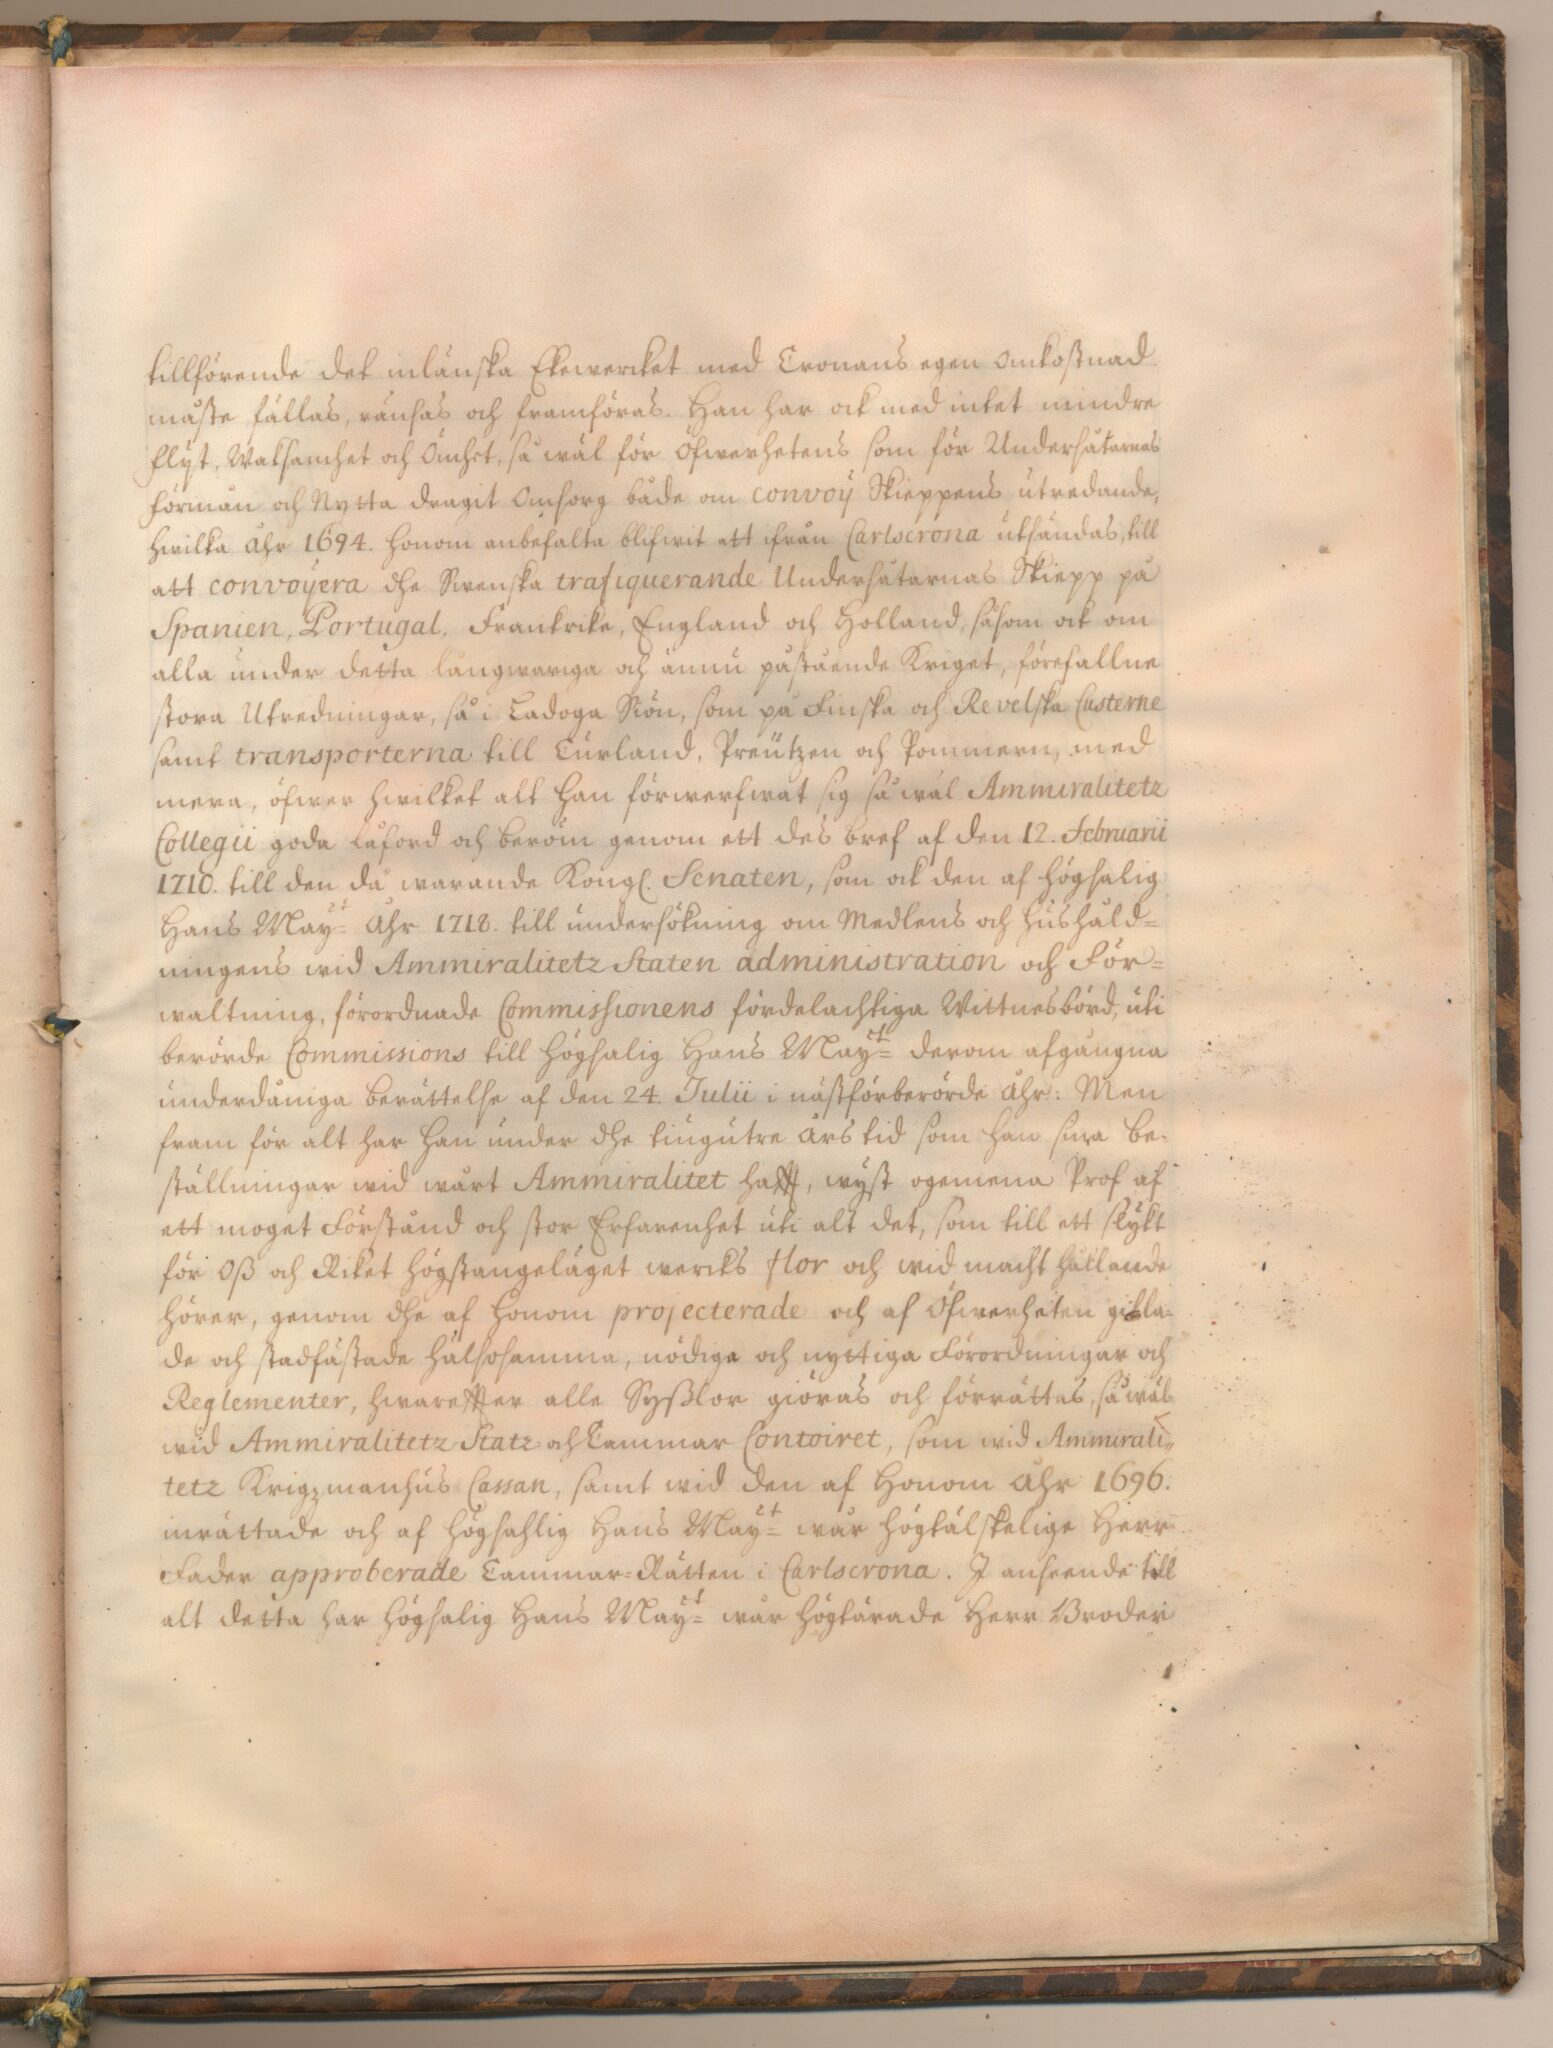 tillförende det inlänska Ekewercket med Cronans egen omkostnad
måste fällas, ränsas och framföras. Han har ock med intet mindre
flyt, Waksamhet och Ömhet, så wäl för Öfwerhetens som för Undersåtarnes
förmån och Nytta dragit omsorg både om convoy Skieppens utredande,
hwilka åhr 1694. honom anbefalta blifwit att ifrån Carlscrona utsändas, till
att convoyera dhe Swenska trafiquerande Undersåtarnas Skiepp på
Spanien, Portugal, Frankrike, England och Holland, såsom ock om
alla under detta långwariga och ännu påstående Kriget, förefallne
stora Utredningar, så i Ladoga Siön, som på Finska och Revelska Custerne
samt transporterna till Curland, Preützen och Pommern, med
mera, öfwer hwilket alt han förwerfwat sig så wäl Ammiralitetz
Collegii goda låford och beröm genom ett des bref af den 12. Februarii
1710. till den då warande Kongl. Senaten, som ock den af högsalig
Hans May:tt åhr 1718. till undersökning om Medlens och hushåld-
ningens wid Ammiralitetz Staten administration och För-
waltning, förordnade Commissionens fördelachtiga Wittnesbörd, uti
berörde Commissions till högsalig Hans May:tt derom afgångna
underdåniga berättelse af den 24. Julii i nästförberörde åhr: Men
fram för alt har han under dhe tiugutre års tid som han sina be-
ställningar wid wårt Ammiralitet hafft, wyst ogemena Prof af
ett moget Förstånd och stor Erfarenhet uti alt det, som till ett slykt
för Oß och Riket högstangeläget wercks flor och wid macht hållande
hörer, genom dhe af honom projecterade och af Öfwerheten gilla-
de och stadfästade hälsosamma, nödiga och nyttiga Förordningar och
Reglementer, hwareffter alle Syßlor giöras och förrättas, så wäl
wid Ammiralitetz Statz och Cammar Contoiret, som wid Ammirali-
tetz Krigzmanhus Cassan, samt wid den af Honom åhr 1696.
inrättade och af högsahlig Hans May:tt wår högtälskelige Herr
Fader approberade Cammar-Rätten i Carlscrona. I anseende till
alt detta har högsalig Hans May:tt wår högtärade Herr Broder